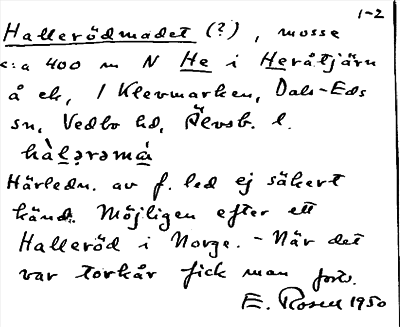 1-2
Hallerödmadet (?), mosse
c:a 400 m N He i Heråtjärn
å ek, / Klevmarken, Dals-Eds
sn, Vedbo hd, Älvsb. l.
hàḷərəmá
Härledn. av f. led ej säkert
känd. Möjligen efter ett
Halleröd i Norge. - När det
var torkår fick man forts.
E. Rosell 1950